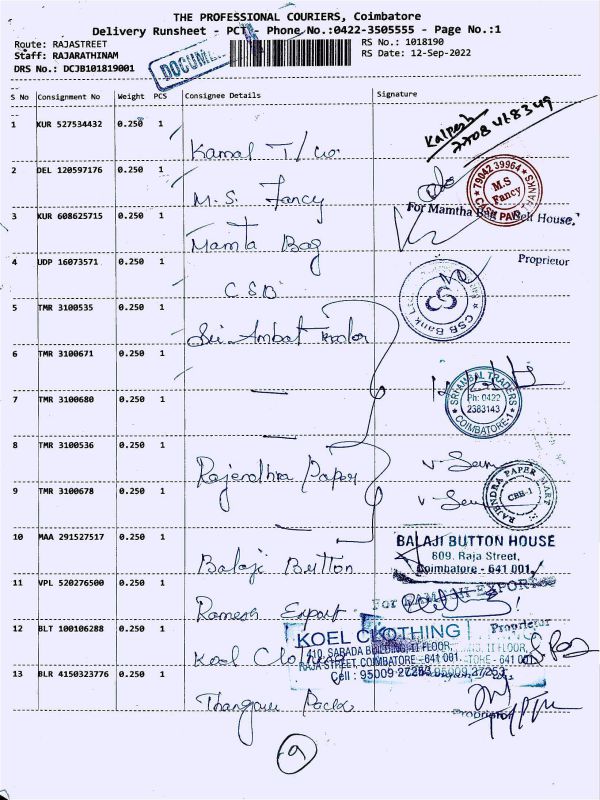 THE PROFESSIONAL COURIERS, Coimbatore
Delivery Runsheet - PCT - Phone No.:0422-3505555 - Page No.:1
Route: RAJASTREET
RS No.: 1018190
Staff: RAJARATHINAM
RS Date: 12-Sep-2022
DRS No.: DCJB101819001
DOCUME
S No Consignment No Weight PCS Consignee Details Signature
1 KUR 527534432 0.250 1
Kalpesh
7708468349
Kamal T/co
2 DEL 120597176 0.250 1
79042 39964
M.S
Fancy
M.S. Fancy
For Mamtha Bag Belt House.
3 KUR 608625715 0.250 1
Mamta Bag
Proprietor
4 UDP 16073571 0.250 1
CSB
CSB Bank
5 TMR 3100535 0.250 1
Sri Ambal
6 TMR 3100671 0.250 1
SRI AMBAL TRADERS
Ph: 0422
2383143
COIMBATORE-1
7 TMR 3100680 0.250 1
8 TMR 3100536 0.250 1
Rajendhra Paper
RAJENDRA PAPER MART
CBE-1
9 TMR 3100678 0.250 1
10 MAA 291527517 0.250 1
BALAJI BUTTON HOUSE
609. Raja Street,
Coimbatore - 641 001.
Balaji Button
11 VPL 520276500 0.250 1
For EXPORT
Ramesh Export
12 BLT 100106288 0.250 1
Proprietor
KOEL CLOTHING
410, SARADA BUILDING, II FLOOR,
RAJA STREET, COIMBATORE - 641 001.
Cell : 95009 27253
Koel Clothing
13 BLR 4150323776 0.250 1
Proprietor
9